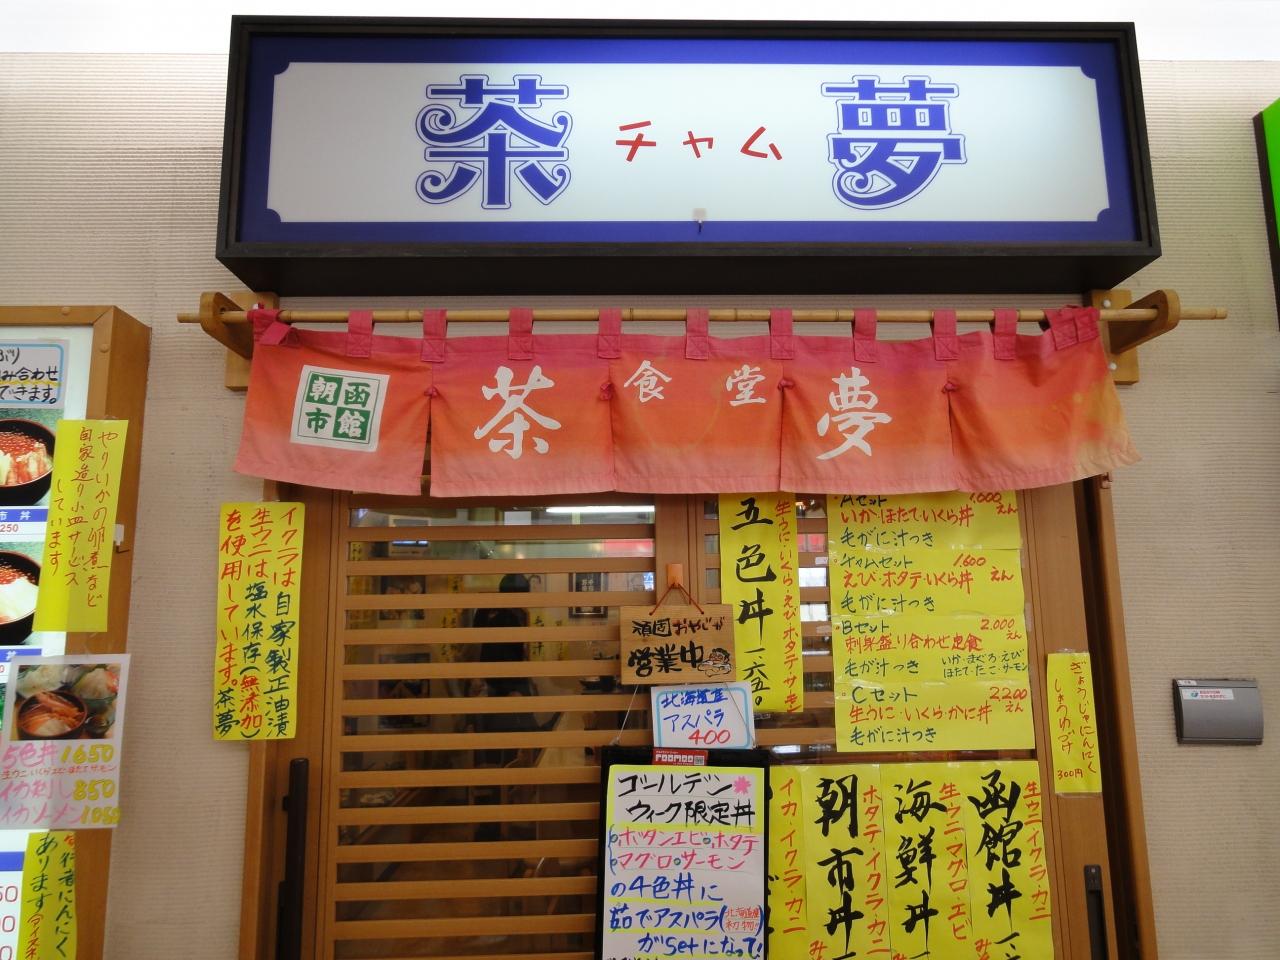 茶 チャム 夢
函館朝市
茶 食堂 夢
み合わせ
できます。
やりいかの卵煮など
自家造り小皿サービス
しています
イクラは自家製正油漬
生ウニは塩水保存(無添加)
を使用しています。茶夢
五色丼 一六五〇
生うに・いくら・えび・ホタテ・サーモン
Aセット 1,600えん
いか・ほたて・いくら丼
毛がに汁つき
チャムセット 1,600えん
えび・ホタテ・いくら丼
毛がに汁つき
Bセット 2,000えん
刺身盛り合わせ定食
毛が汁つき いか・まぐろ・えび
ほたて・たこ・サーモン
Cセット 2200えん
生うに・いくら・かに丼
毛がに汁つき
頑固おやじが
営業中
北海道産
アスパラ
400
ぎょうじゃにんにく
しょうゆづけ
300円
5色丼 1650
生ウニ・いくら・エビ・ほたて・サーモン
イカ刺し 850
イカソーメン 1050
行者にんにく
あります
ゴールデン
ウィーク限定丼
ボタンエビ・ホタテ
マグロ・サーモン
の4色丼に
茹でアスパラ(北海道産初物)
がsetになって!
イカ・イクラ・カニ
朝市丼
ホタテ・イクラ・カニ
海鮮丼
生ウニ・マグロ・エビ
函館丼
生ウニ・イクラ・カニ